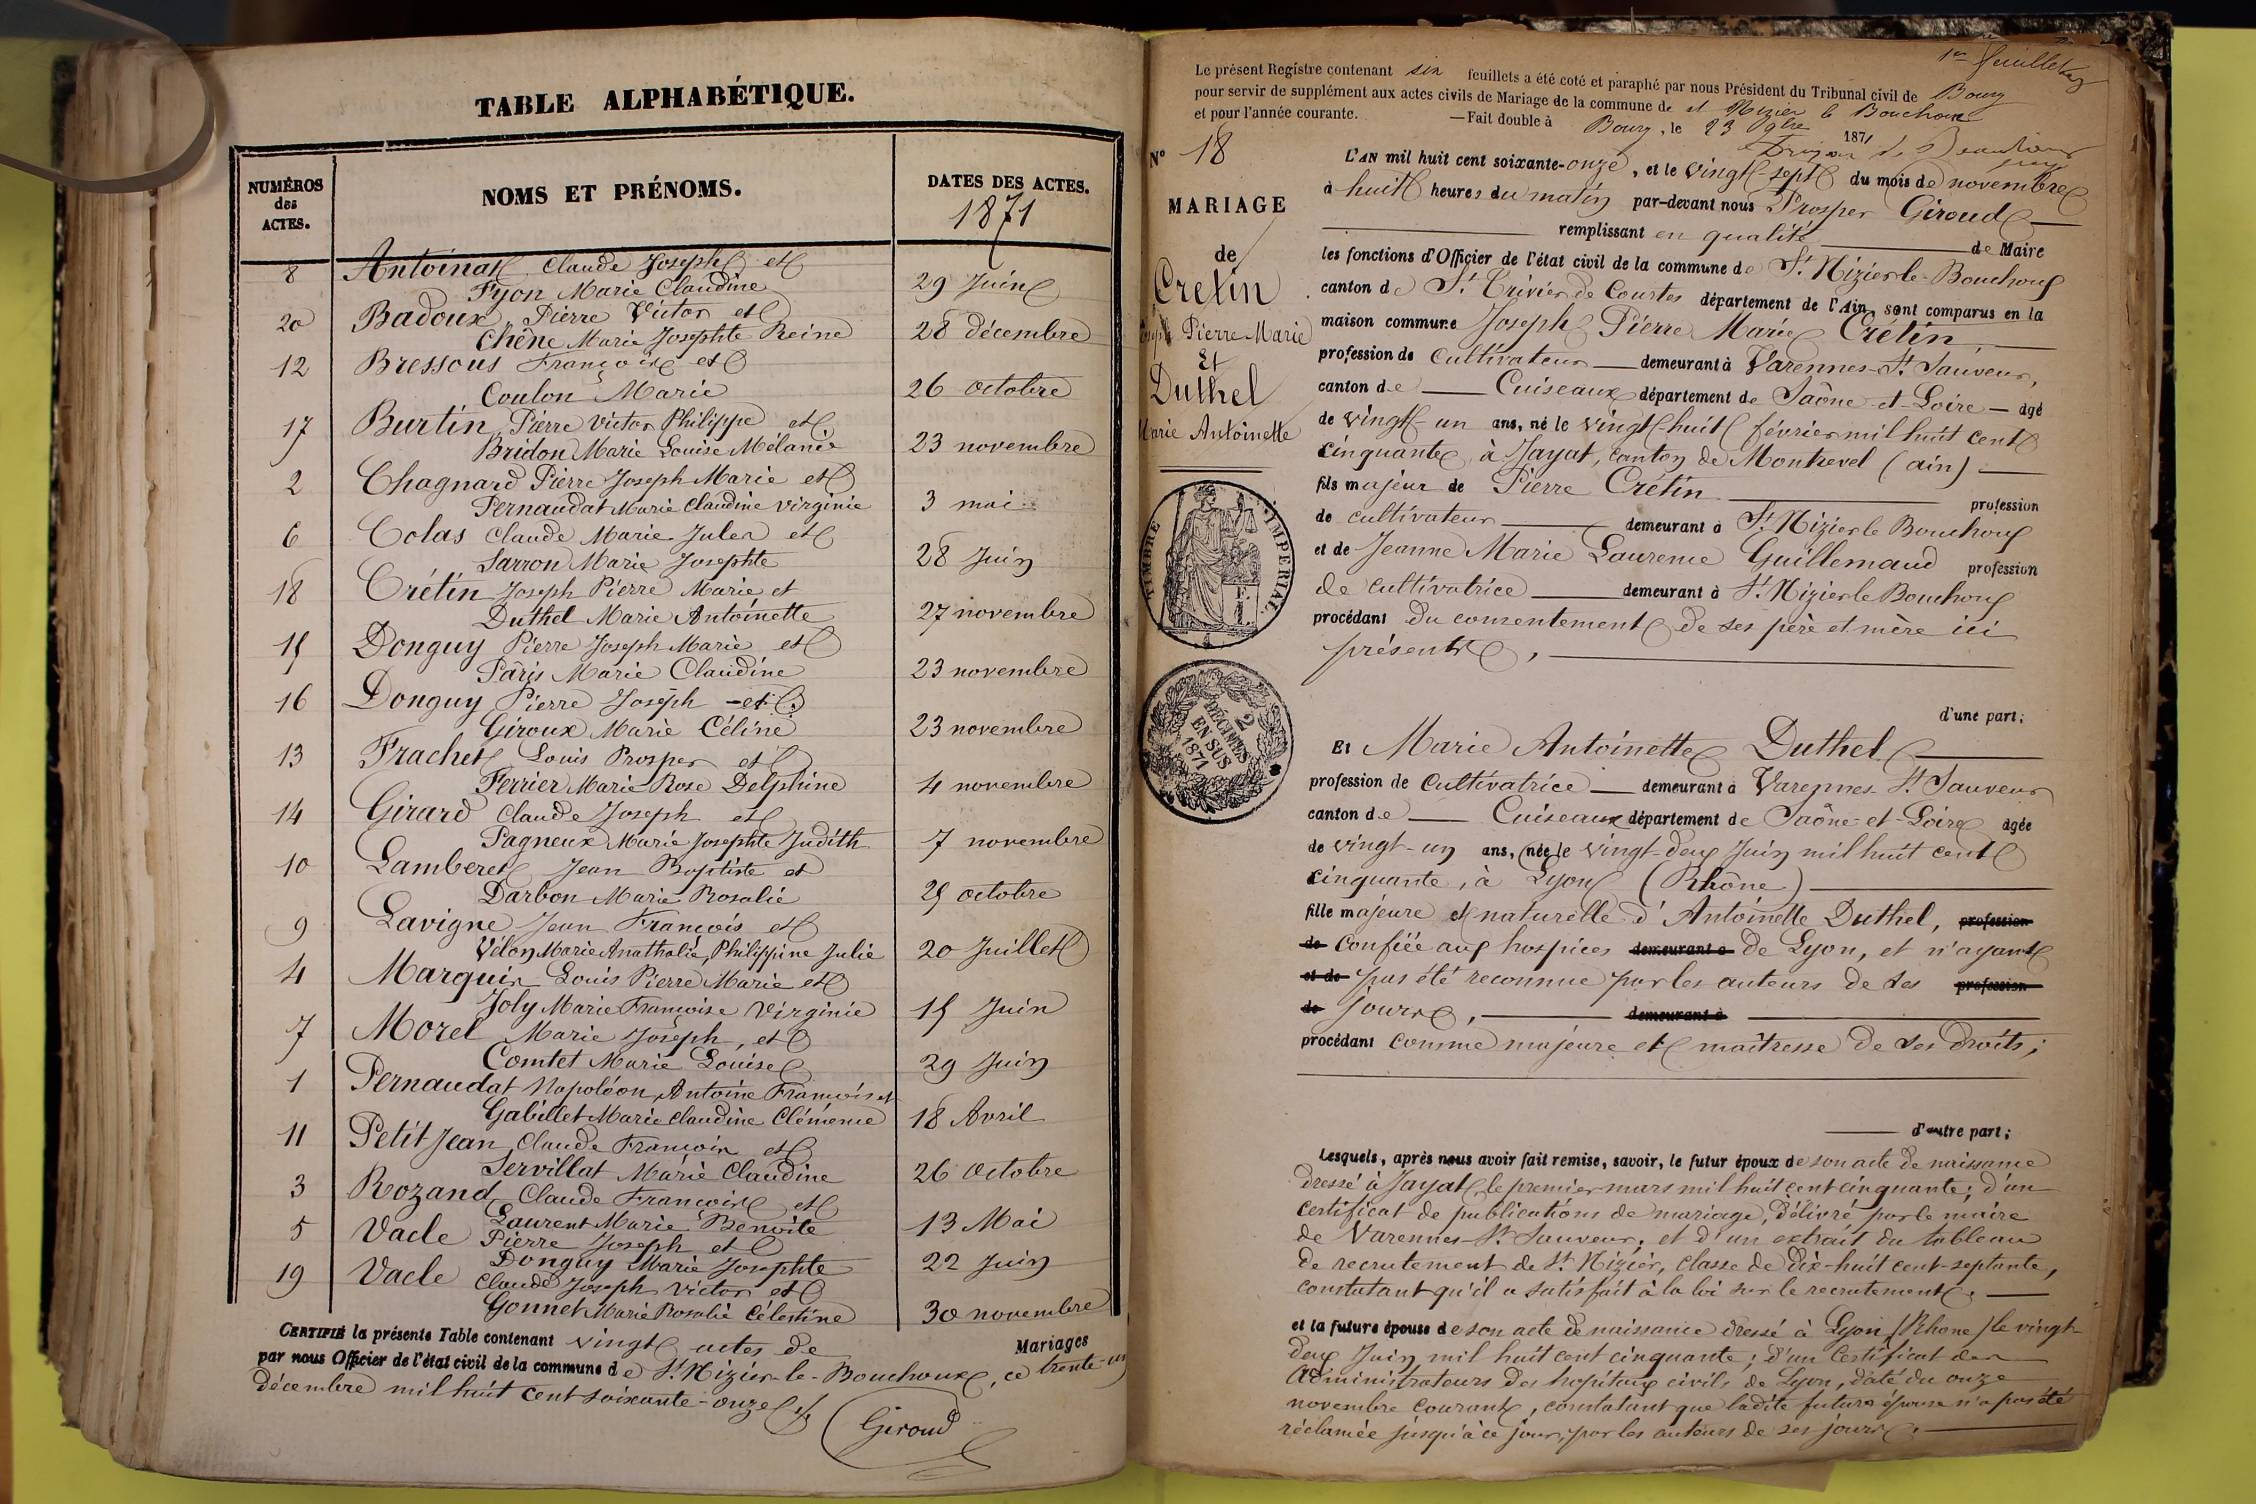 TABLE ALPHABÉTIQUE.
NUMÉROS des ACTES.
NOMS ET PRÉNOMS.
DATES DES ACTES.
1871
8 Antoinat Claude Joseph et
Fyon Marie Claudine 29 Juin
20 Badoux Pierre Victor et
Chêne Marie Josephte Reine 28 décembre
12 Bressous François et
Coulon Marie 26 octobre
17 Burtin Pierre Victor Philippe et
Bridon Marie Louise Mélanie 23 novembre
2 Chagnard Pierre Joseph Marie et
Pernaudat Marie Claudine Virginie 3 mai
6 Colas Claude Marie Jules et
Sarron Marie Josephte 28 Juin
18 Crétin Joseph Pierre Marie et
Duthel Marie Antoinette 27 novembre
15 Donguy Pierre Joseph Marie et
Pâris Marie Claudine 23 novembre
16 Donguy Pierre Joseph et
Giroux Marie Céline 23 novembre
13 Frachet Louis Prosper et
Ferrier Marie Rose Delphine 4 novembre
14 Girard Claude Joseph et
Pagneux Marie Josephte Judith 7 novembre
10 Lamberet Jean Baptiste et
Darbon Marie Rosalie 25 octobre
9 Lavigne Jean François et
Vélon Marie Anathalie, Philippine Julie 20 Juillet
4 Marquis Louis Pierre Marie et
Joly Marie Françoise Virginie 15 Juin
7 Morel Marie Joseph, et
Comtet Marie Louise 29 Juin
1 Pernaudat Napoléon, Antoine François et
Gabillet Marie Claudine Clémence 18 Avril
11 Petitjean Claude François et
Servillat Marie Claudine 26 Octobre
3 Rozand Claude François et
Laurent Marie Benoite 13 Mai
5 Vacle Pierre Joseph et
Donguy Marie Josephte 22 Juin
19 Vacle Claude Joseph Victor et
Gonnet Marie Rosalie Célestine 30 novembre
CERTIFIÉ la présente Table contenant vingt actes de Mariages
par nous Officier de l'état civil de la commune de St Nizier-le-Bouchoux, ce trente-un
décembre mil huit cent soixante-onze
Giroud
1er feuillet
Le présent Registre contenant six feuillets a été coté et paraphé par nous Président du Tribunal civil de Bourg
pour servir de supplément aux actes civils de Mariage de la commune de St Nizier le Bouchoux
et pour l'année courante. —Fait double à Bourg, le 23 9bre 1871
No 18
MARIAGE
de
Cretin
Joseph Pierre Marie
Et
Duthel
Marie Antoinette
TIMBRE IMPERIAL
2 DÉCIMES
EN SUS
1871
L'AN mil huit cent soixante-onze, et le vingt-sept du mois de novembre
à huit heures du matin par-devant nous Prosper Giroud
remplissant en qualité de Maire
les fonctions d'Officier de l'état civil de la commune de St Nizier-le-Bouchoux
canton de St Trivier de Courtes département de l'Ain, sont comparus en la
maison commune Joseph Pierre Marie Crétin,
profession de cultivateur demeurant à Varennes-St Sauveur,
canton de Cuiseaux département de Saône-et-Loire — âgé
de vingt-un ans, né le vingt-huit février mil huit cent
cinquante, à Jayat, canton de Montrevel (ain)
fils majeur de Pierre Crétin profession
de cultivateur demeurant à St Nizier le Bouchoux
et de Jeanne Marie Laurence Guillemaud profession
de cultivatrice demeurant à St Nizier le Bouchoux
procédant du consentement de ses père et mère ici
présents,
d'une part;
Et Marie Antoinette Duthel
profession de cultivatrice demeurant à Varennes St Sauveur
canton de Cuiseaux département de Saône-et-Loire âgée
de vingt-un ans, née le vingt-deux Juin mil huit cent
cinquante, à Lyon (Rhône)
fille majeure et naturelle d'Antoinette Duthel, profession
de confiée aux hospices demeurant à de Lyon, et n'ayant
et de pas été reconnue par les auteurs de ses profession
de jours, demeurant à
procédant comme majeure et maîtresse de ses droits;
d'autre part;
Lesquels, après nous avoir fait remise, savoir, le futur époux de son acte de naissance
dressé à Jayat, le premier mars mil huit cent cinquante; d'un
certificat de publications de mariage, délivré par le maire
de Varennes-St Sauveur; et d'un extrait du tableau
de recrutement de St Nizier, classe de dix-huit cent-septante,
constatant qu'il a satisfait à la loi sur le recrutement.
et la future épouse de son acte de naissance dressé à Lyon (Rhone) le vingt-
deux Juin mil huit cent cinquante; d'un Certificat des
Administrateurs des hopitaux civils de Lyon, daté du onze
novembre courant, constatant que ladite future épouse n'a pas été
réclamée jusqu'à ce jour, par les auteurs de ses jours.